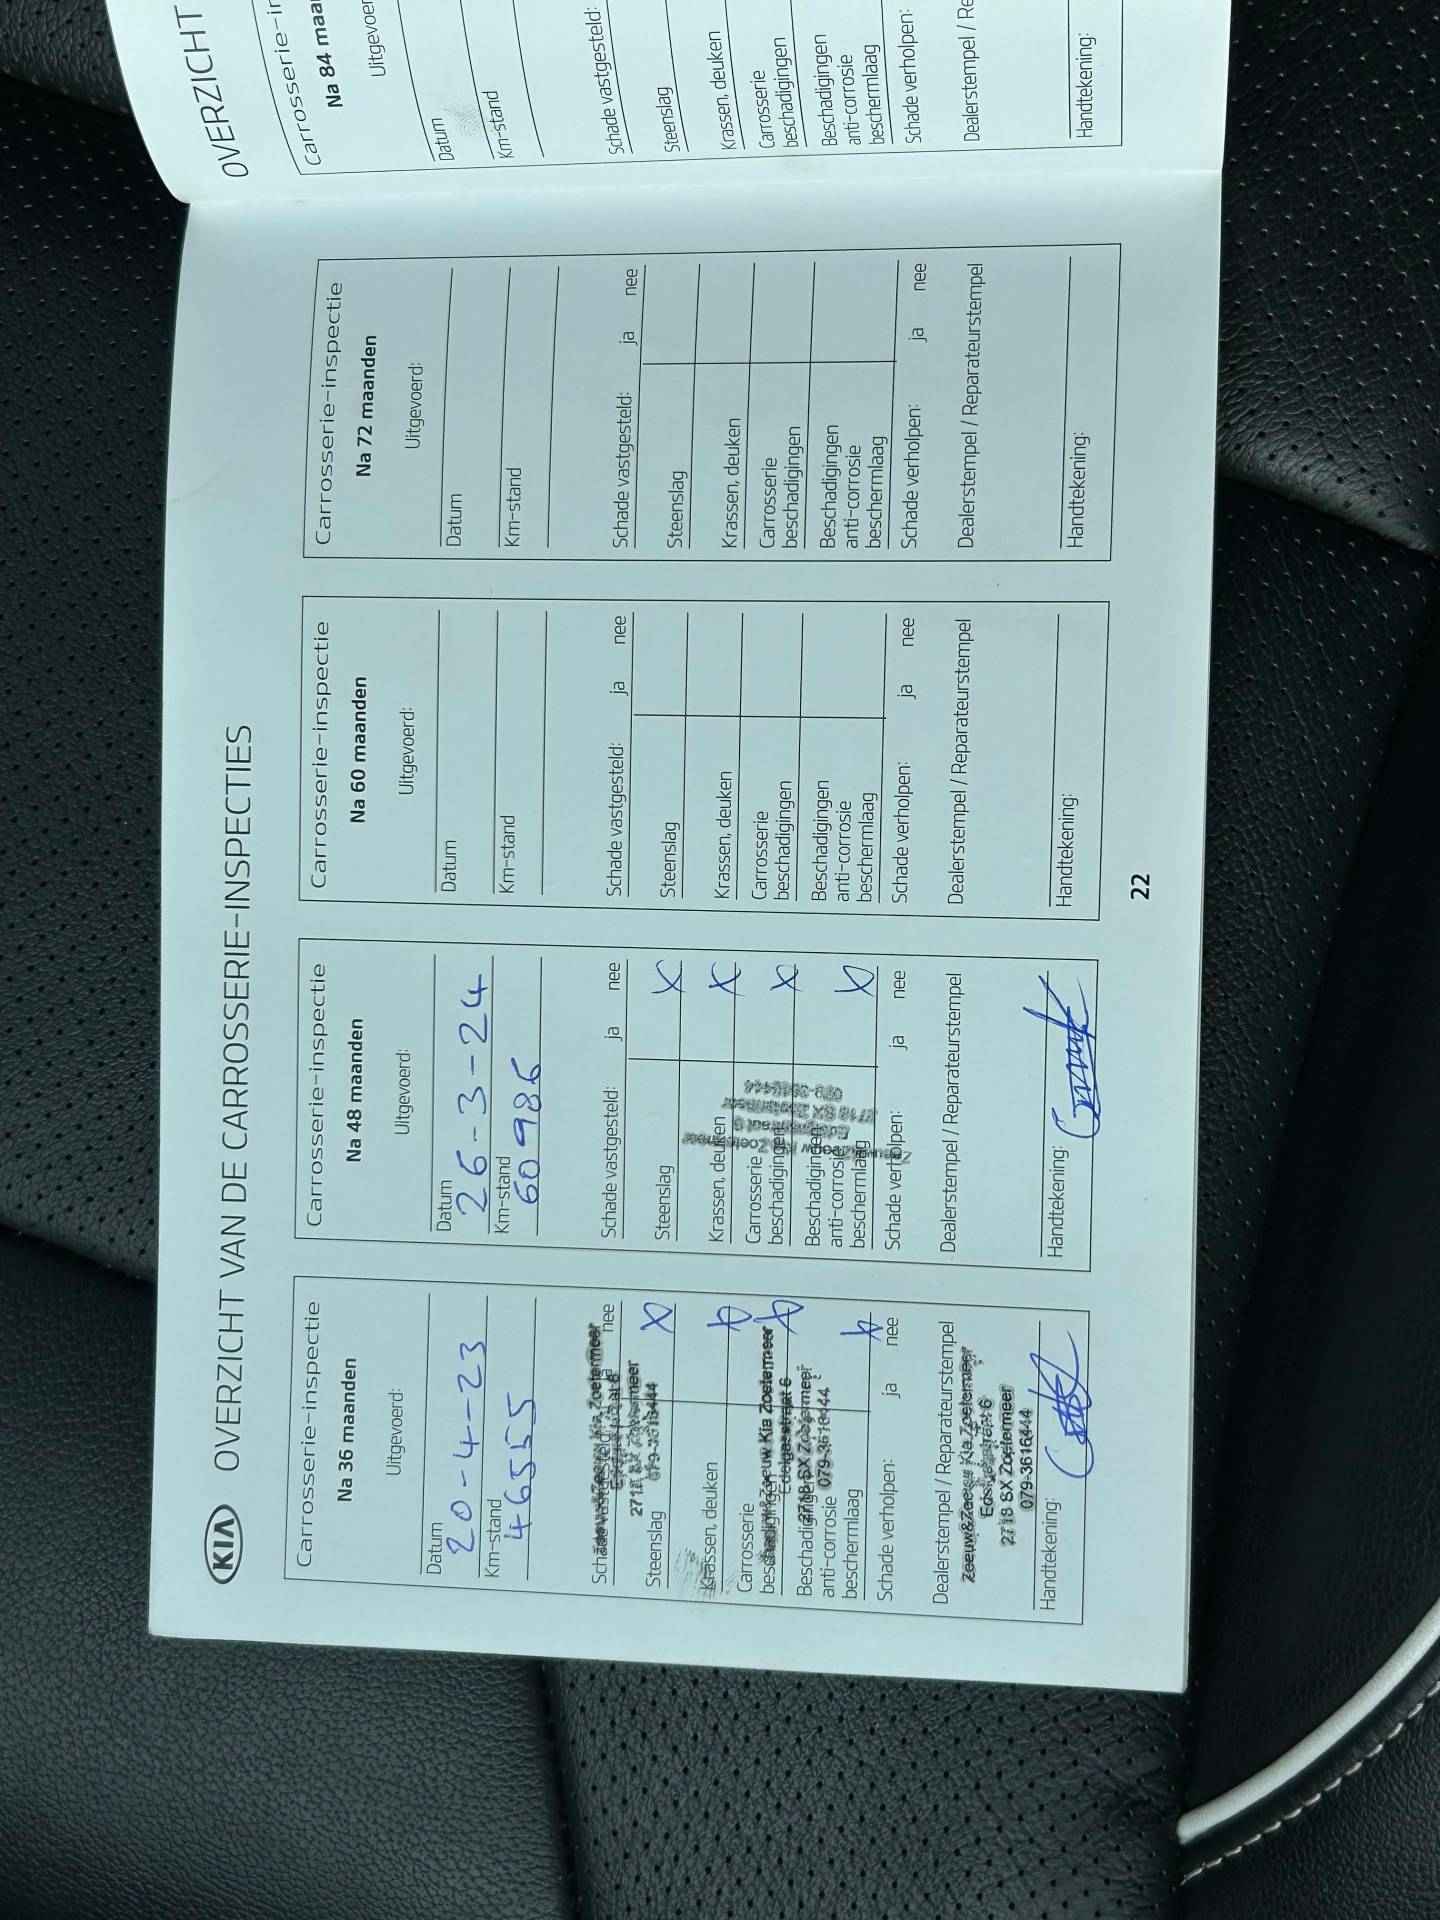 KIA OVERZICHT VAN DE CARROSSERIE-INSPECTIES
Carrosserie-inspectie
Na 36 maanden
Uitgevoerd:
Datum
20-4-23
Km-stand
46555
Schade vastgesteld: ja nee
Steenslag X
Krassen, deuken X
Carrosserie
beschadigingen X
Beschadigingen
anti-corrosie
beschermlaag X
Schade verholpen: ja nee
Dealerstempel / Reparateurstempel
Zeeuw&Zeeuw Kia Zoetermeer
Edelgasstraat 6
2718 SX Zoetermeer
079-3616444
Handtekening:
Carrosserie-inspectie
Na 48 maanden
Uitgevoerd:
Datum
26-3-24
Km-stand
60986
Schade vastgesteld: ja nee
Steenslag X
Krassen, deuken X
Carrosserie
beschadigingen X
Beschadigingen
anti-corrosie
beschermlaag X
Schade verholpen: ja nee
Dealerstempel / Reparateurstempel
Handtekening:
Carrosserie-inspectie
Na 60 maanden
Uitgevoerd:
Datum
Km-stand
Schade vastgesteld: ja nee
Steenslag
Krassen, deuken
Carrosserie
beschadigingen
Beschadigingen
anti-corrosie
beschermlaag
Schade verholpen: ja nee
Dealerstempel / Reparateurstempel
Handtekening:
Carrosserie-inspectie
Na 72 maanden
Uitgevoerd:
Datum
Km-stand
Schade vastgesteld: ja nee
Steenslag
Krassen, deuken
Carrosserie
beschadigingen
Beschadigingen
anti-corrosie
beschermlaag
Schade verholpen: ja nee
Dealerstempel / Reparateurstempel
Handtekening:
22
OVERZICHT
Carrosserie-in
Na 84 maan
Uitgevoer
Datum
Km-stand
Schade vastgesteld:
Steenslag
Krassen, deuken
Carrosserie
beschadigingen
Beschadigingen
anti-corrosie
beschermlaag
Schade verholpen:
Dealerstempel / Re
Handtekening: